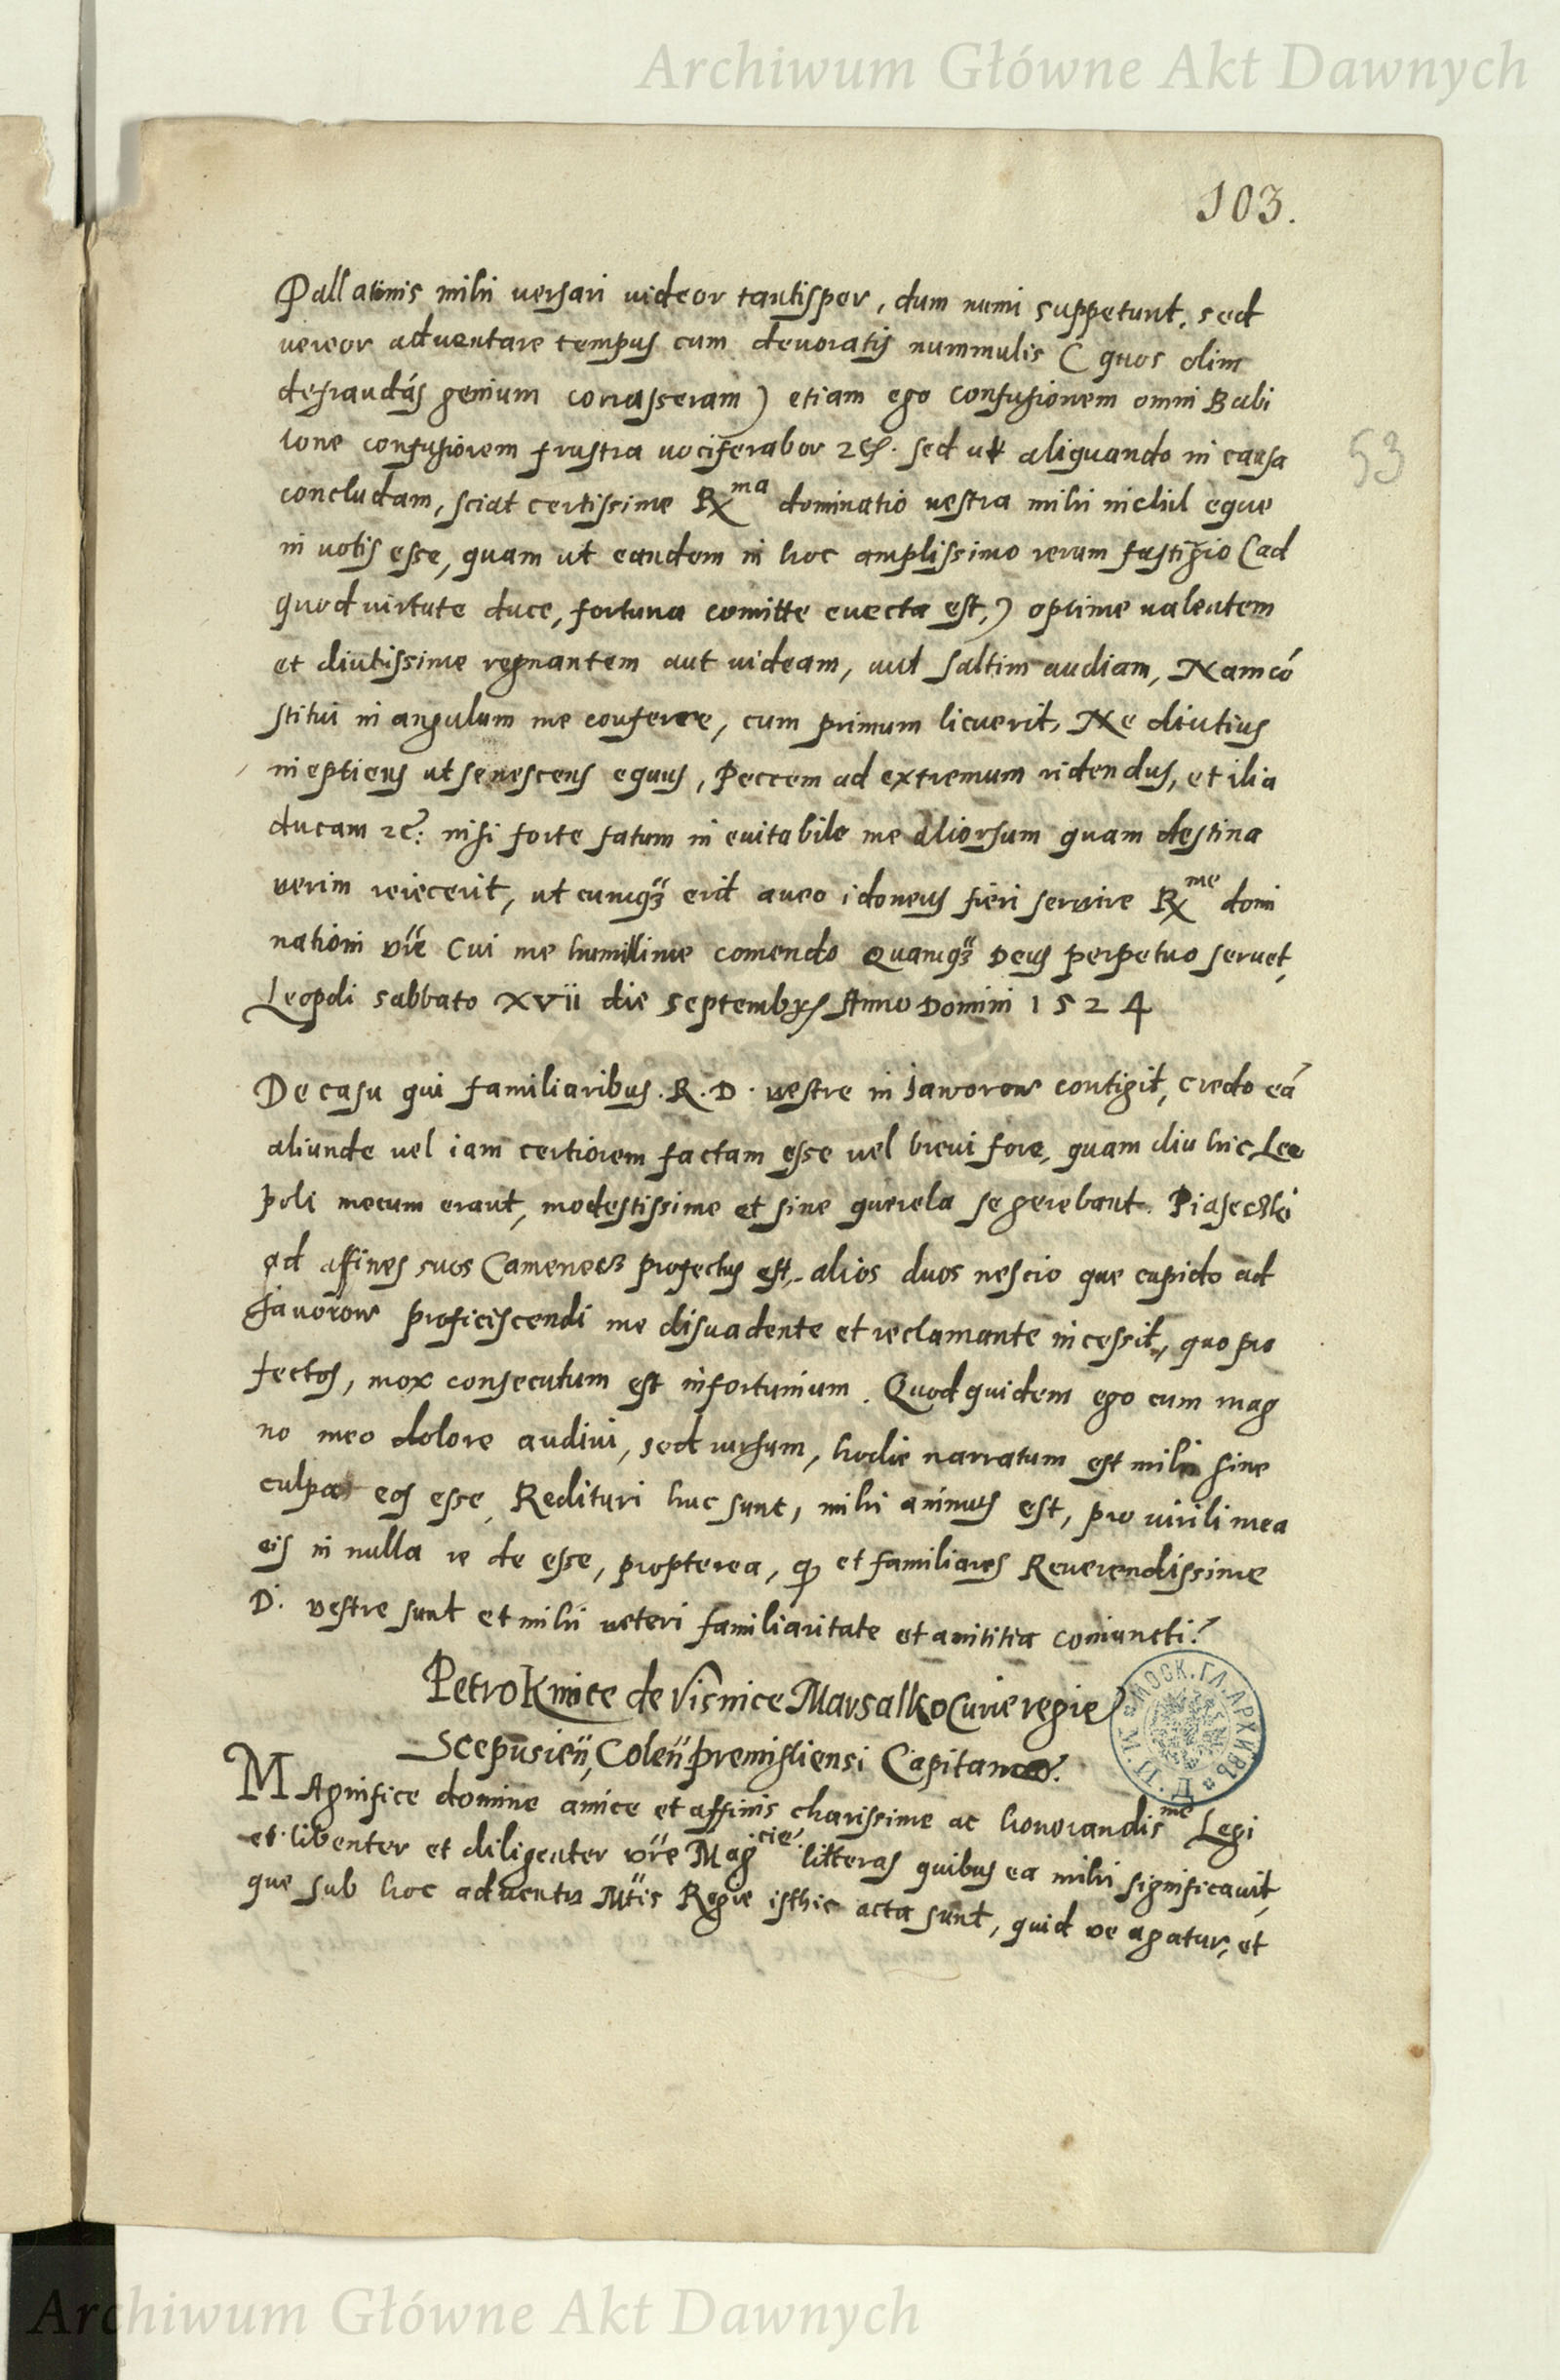 Archiwum Główne Akt Dawnych
103.
Pallatinis mihi versari uideor tantisper, dum numi suppetunt, sed
uereor aduentare tempus cum deuoratis nummulis ( quos olim
defraudās genium corrasseram ) etiam ego confusionem omni Babi
lone confusiorem frustra uociferabor etc. sed ut aliquando in causa
53
concludam, sciat certissime Rx^ma dominatio uestra mihi nichil eque
in uotis esse, quam ut eandem in hoc amplissimo rerum fastigio (ad
quod uirtute duce, fortuna comitte euecta est,) optime ualentem
et diutissime regnantem aut uideam, aut saltim audiam, Nam cō
stitui in angulum me conferre, cum primum licuerit, Ne diutius
ineptiens ut senescens equus, Peccem ad extremum ridendus, et ilia
ducam etc: nisi forte fatum in euitabile me aliorsum quam destina
uerim reiecerit, ut cumq3 erit aueo idoneus fieri seruire Rx^me domi
nationi vr̄e Cui me humillime comendo Quamq3 Deus perpetuo seruet,
Leopoli sabbato XVII die Septembris Anno Domini 1524
De casu qui familiaribus . R . D . uestre in Jaworow contigit, credo eā
aliunde uel iam certiorem factam esse uel breui fore, quam diu hic Leo
poli mecum erant, modestissime et sine querela se gerebant. Piaseczki
ad affines suos Camenecz profectus est, alios duos nescio que cupido ad
Jauorow proficiscendi me disuadente et reclamante incessit, quo pro
fectos, mox consecutum est infortunium. Quod quidem ego cum mag
no meo dolore audiui, sed rursum, hodie narratum est mihi sine
culpa eos esse, Redituri huc sunt, mihi animus est, pro uirili mea
eis in nulla re de esse, propterea, q et familiares Reuerendissime
D. vestre sunt et mihi ueteri familiaritate et amititia coniuncti.
Petro Kmite de Visnice Marsalko Curie regie
Scepusien, Colen premisliensi Capitaneo.
MAgnifice domine amice et affinis charissime ac honorandis^me Legi
et libenter et diligenter vr̄e Mag^cie litteras quibus ea mihi significauit,
que sub hoc aduentu Mtis Regie isthic acta sunt, quid ve agatur, et
МОСК. ГЛ. АРХИВЪ
Archiwum Główne Akt Dawnych